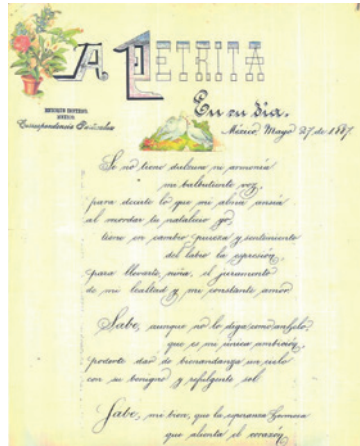 A. PETRITA
En su día.
México, Mayo 27 de 1887.
Si no tiene dulzura ni armonía
mi balbutiente voz,
para decirte lo que mi alma ansía
al recordar tu natalicio yo,
tiene en cambio pureza y sentimiento
del labio la expresión,
para llevarte, niña, el juramento
de mi lealtad y mi constante amor.
Sabe, aunque no lo diga como anhelo
que es mi única ambición,
poderte dar de bienandanza un cielo
con su benigno y refulgente sol.
Sabe, mi bien, que la esperanza hermosa
que alienta el corazón,